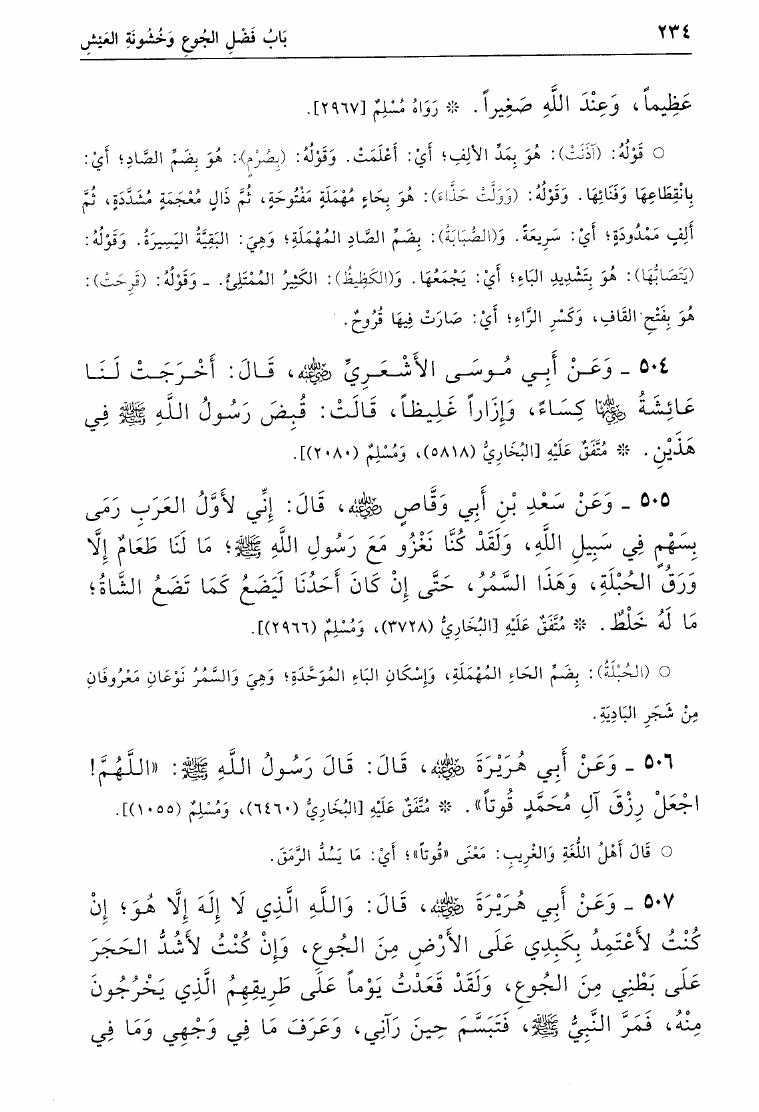 ٢٣٤
بَابُ فَضْلِ الجُوعِ وَخُشُونَةِ العَيْشِ
عَظِيماً، وَعِنْدَ اللَّهِ صَغِيراً. * رَوَاهُ مُسْلِمٌ [٢٩٦٧].
○ قَوْلُهُ: (آذَنَتْ): هُوَ بِمَدِّ الأَلِفِ؛ أَيْ: أَعْلَمَتْ. وَقَوْلُهُ: (بِصُرْمٍ): هُوَ بِضَمِّ الصَّادِ؛ أَيْ:
بِانْقِطَاعِهَا وَفَنَائِهَا. وَقَوْلُهُ: (وَوَلَّتْ حَذَّاءَ): هُوَ بِحَاءٍ مُهْمَلَةٍ مَفْتُوحَةٍ، ثُمَّ ذَالٍ مُعْجَمَةٍ مُشَدَّدَةٍ، ثُمَّ
أَلِفٍ مَمْدُودَةٍ؛ أَيْ: سَرِيعَةً. وَ(الصُّبَابَةُ): بِضَمِّ الصَّادِ المُهْمَلَةِ؛ وَهِيَ: البَقِيَّةُ اليَسِيرَةُ. وَقَوْلُهُ:
(يَتَصَابُّهَا): هُوَ بِتَشْدِيدِ البَاءِ؛ أَيْ: يَجْمَعُهَا. وَ(الكَظِيظُ): الكَثِيرُ المُمْتَلِئُ. ـ وَقَوْلُهُ: (قَرِحَتْ):
هُوَ بِفَتْحِ القَافِ، وَكَسْرِ الرَّاءِ؛ أَيْ: صَارَتْ فِيهَا قُرُوحٌ.
٥٠٤ ـ وَعَنْ أَبِي مُوسَى الأَشْعَرِيِّ رضي الله عنه، قَالَ: أَخْرَجَتْ لَنَا
عَائِشَةُ رضي الله عنها كِسَاءً، وَإِزَاراً غَلِيظاً، قَالَتْ: قُبِضَ رَسُولُ اللَّهِ ﷺ فِي
هَذَيْنِ. * مُتَّفَقٌ عَلَيْهِ [البُخَارِيُّ (٥٨١٨)، وَمُسْلِمٌ (٢٠٨٠)].
٥٠٥ ـ وَعَنْ سَعْدِ بْنِ أَبِي وَقَّاصٍ رضي الله عنه، قَالَ: إِنِّي لَأَوَّلُ العَرَبِ رَمَى
بِسَهْمٍ فِي سَبِيلِ اللَّهِ، وَلَقَدْ كُنَّا نَغْزُو مَعَ رَسُولِ اللَّهِ ﷺ؛ مَا لَنَا طَعَامٌ إِلَّا
وَرَقُ الحُبْلَةِ، وَهَذَا السَّمُرُ، حَتَّى إِنْ كَانَ أَحَدُنَا لَيَضَعُ كَمَا تَضَعُ الشَّاةُ؛
مَا لَهُ خَلْطٌ. * مُتَّفَقٌ عَلَيْهِ [البُخَارِيُّ (٣٧٢٨)، وَمُسْلِمٌ (٢٩٦٦)].
○ (الحُبْلَةُ): بِضَمِّ الحَاءِ المُهْمَلَةِ، وَإِسْكَانِ البَاءِ المُوَحَّدَةِ؛ وَهِيَ وَالسَّمُرُ نَوْعَانِ مَعْرُوفَانِ
مِنْ شَجَرِ البَادِيَةِ.
٥٠٦ ـ وَعَنْ أَبِي هُرَيْرَةَ رضي الله عنه، قَالَ: قَالَ رَسُولُ اللَّهِ ﷺ: «اللَّهُمَّ!
اجْعَلْ رِزْقَ آلِ مُحَمَّدٍ قُوتاً». * مُتَّفَقٌ عَلَيْهِ [البُخَارِيُّ (٦٤٦٠)، وَمُسْلِمٌ (١٠٥٥)].
○ قَالَ أَهْلُ اللُّغَةِ وَالغَرِيبِ: مَعْنَى «قُوتاً»؛ أَيْ: مَا يَسُدُّ الرَّمَقَ.
٥٠٧ ـ وَعَنْ أَبِي هُرَيْرَةَ رضي الله عنه، قَالَ: وَاللَّهِ الَّذِي لَا إِلَهَ إِلَّا هُوَ؛ إِنْ
كُنْتُ لَأَعْتَمِدُ بِكَبِدِي عَلَى الأَرْضِ مِنَ الجُوعِ، وَإِنْ كُنْتُ لَأَشُدُّ الحَجَرَ
عَلَى بَطْنِي مِنَ الجُوعِ، وَلَقَدْ قَعَدْتُ يَوْماً عَلَى طَرِيقِهِمُ الَّذِي يَخْرُجُونَ
مِنْهُ، فَمَرَّ النَّبِيُّ ﷺ، فَتَبَسَّمَ حِينَ رَآنِي، وَعَرَفَ مَا فِي وَجْهِي وَمَا فِي